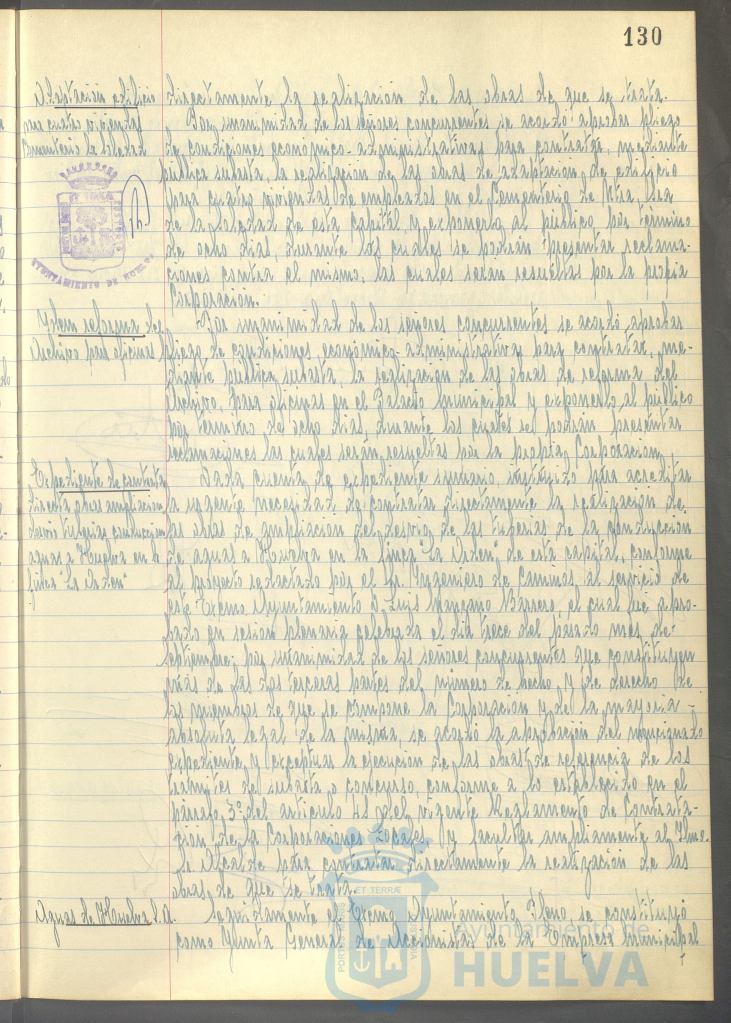 130
Adaptación edificio
para cuatro viviendas
Cementerio la Soledad
AYUNTAMIENTO DE HUELVA
directamente la realización de las obras de que se trata.
Por unanimidad de los señores concurrentes se acordó aprobar pliego
de condiciones económico-administrativas para contratar, mediante
pública subasta, la realización de las obras de adaptación de edificio
para cuatro viviendas de empleados en el Cementerio de Ntra. Sra.
de la Soledad de esta capital, y exponerlo al público por término
de ocho días, durante los cuales se podrán presentar reclama-
ciones contra el mismo, las cuales serán resueltas por la propia
Corporación.
Idem reforma del
Archivo para oficinas
Por unanimidad de los señores concurrentes se acordó aprobar
pliego de condiciones, económico-administrativas para contratar, me-
diante pública subasta, la realización de las obras de reforma del
Archivo, para oficinas en el Palacio Municipal y exponerlo al público
por término de ocho días, durante los cuales se podrán presentar
reclamaciones las cuales serán resueltas por la propia Corporación.
Expediente de contrata
directa obras ampliación
desvío tuberías conducción
aguas a Huelva en la
finca "La Orden"
Dada cuenta de expediente sumario, instruido para acreditar
la urgente necesidad de contratar directamente la realización de
las obras de ampliación del desvío de las tuberías de la conducción
de aguas a Huelva en la finca "La Orden" de esta capital, conforme
al proyecto redactado por el Sr. Ingeniero de Caminos al servicio de
este Excmo. Ayuntamiento D. Luis Manzano Barrero, el cual fue apro-
bado en sesión plenaria celebrada el día trece del pasado mes de
septiembre; por unanimidad de los señores concurrentes que constituyen
más de las dos terceras partes del número de hecho y de derecho de
los miembros de que se compone la Corporación y de la mayoría
absoluta legal de la misma, se acordó la aprobación del mencionado
expediente, y exceptuar la ejecución de las obras de referencia de los
trámites de subasta o concurso, conforme a lo establecido en el
párrafo 3º del artículo 41 del vigente Reglamento de Contrata-
ción de la Corporaciones Locales y facultar ampliamente al Ilmo.
Sr. Alcalde para contratar directamente la realización de las
obras de que se trata.
Aguas de Huelva S.A.
Seguidamente el Excmo. Ayuntamiento Pleno, se constituyó
como Junta General de Accionistas de la Empresa Municipal
PORTUS MARIS ET TERRAE CUSTODIA
Ayuntamiento de
HUELVA